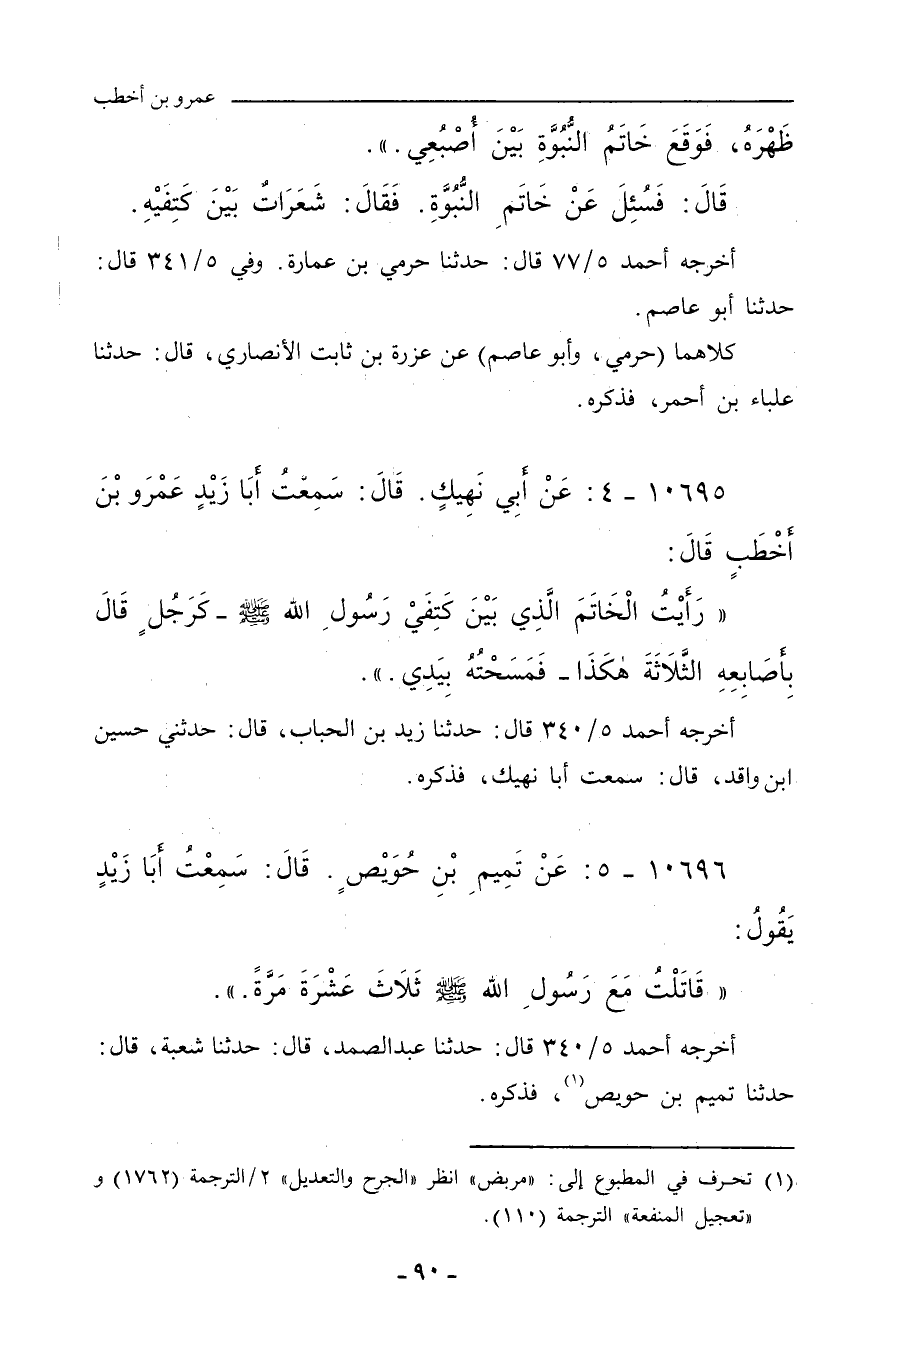 عمرو بن أخطب
ظَهْرَهُ، فَوَقَعَ خَاتَمُ النُّبُوَّةِ بَيْنَ أُصْبُعِي.».
قَالَ: فَسُئِلَ عَنْ خَاتَمِ النُّبُوَّةِ. فَقَالَ: شَعَرَاتٌ بَيْنَ كَتِفَيْهِ.
أخرجه أحمد ٥/٧٧ قال: حدثنا حرمي بن عمارة. وفي ٥/٣٤١ قال:
حدثنا أبو عاصم.
كلاهما (حرمي، وأبو عاصم) عن عزرة بن ثابت الأنصاري، قال: حدثنا
علباء بن أحمر، فذكره.
١٠٦٩٥ - ٤: عَنْ أَبِي نَهِيكٍ. قَالَ: سَمِعْتُ أَبَا زَيْدٍ عَمْرَو بْنَ
أَخْطَبٍ قَالَ:
« رَأَيْتُ الْخَاتَمَ الَّذِي بَيْنَ كَتِفَيْ رَسُولِ الله ﷺ - كَرَجُلٍ قَالَ
بِأَصَابِعِهِ الثَّلَاثَةَ هٰكَذَا - فَمَسَحْتُهُ بِيَدِي.».
أخرجه أحمد ٥/٣٤٠ قال: حدثنا زيد بن الحباب، قال: حدثني حسين
ابن واقد، قال: سمعت أبا نهيك، فذكره.
١٠٦٩٦ - ٥: عَنْ تَمِيمِ بْنِ حُوَيْصٍ. قَالَ: سَمِعْتُ أَبَا زَيْدٍ
يَقُولُ:
« قَاتَلْتُ مَعَ رَسُولِ الله ﷺ ثَلَاثَ عَشْرَةَ مَرَّةً.».
أخرجه أحمد ٥/٣٤٠ قال: حدثنا عبدالصمد، قال: حدثنا شعبة، قال:
حدثنا تميم بن حويص(١)، فذكره.
(١) تحرف في المطبوع إلى: «مربض» انظر «الجرح والتعديل» ٢/الترجمة (١٧٦٢) و
«تعجيل المنفعة» الترجمة (١١٠).
- ٩٠ -